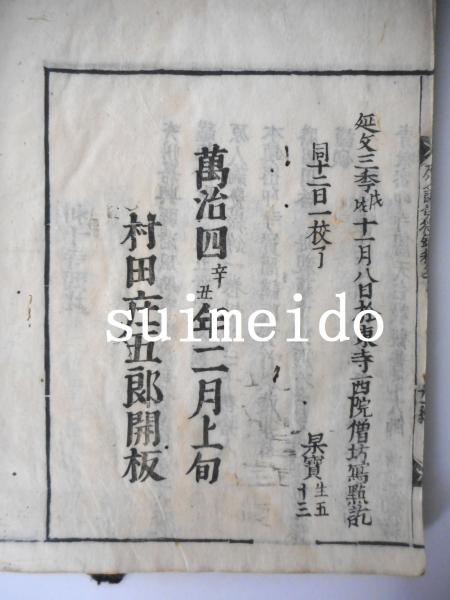 延文三季戊戌十一月八日於東寺西院僧坊寫點訖
同十二日一校了
杲寶生五十三
萬治四辛丑年二月上旬
村田庄五郎開板
suimeido